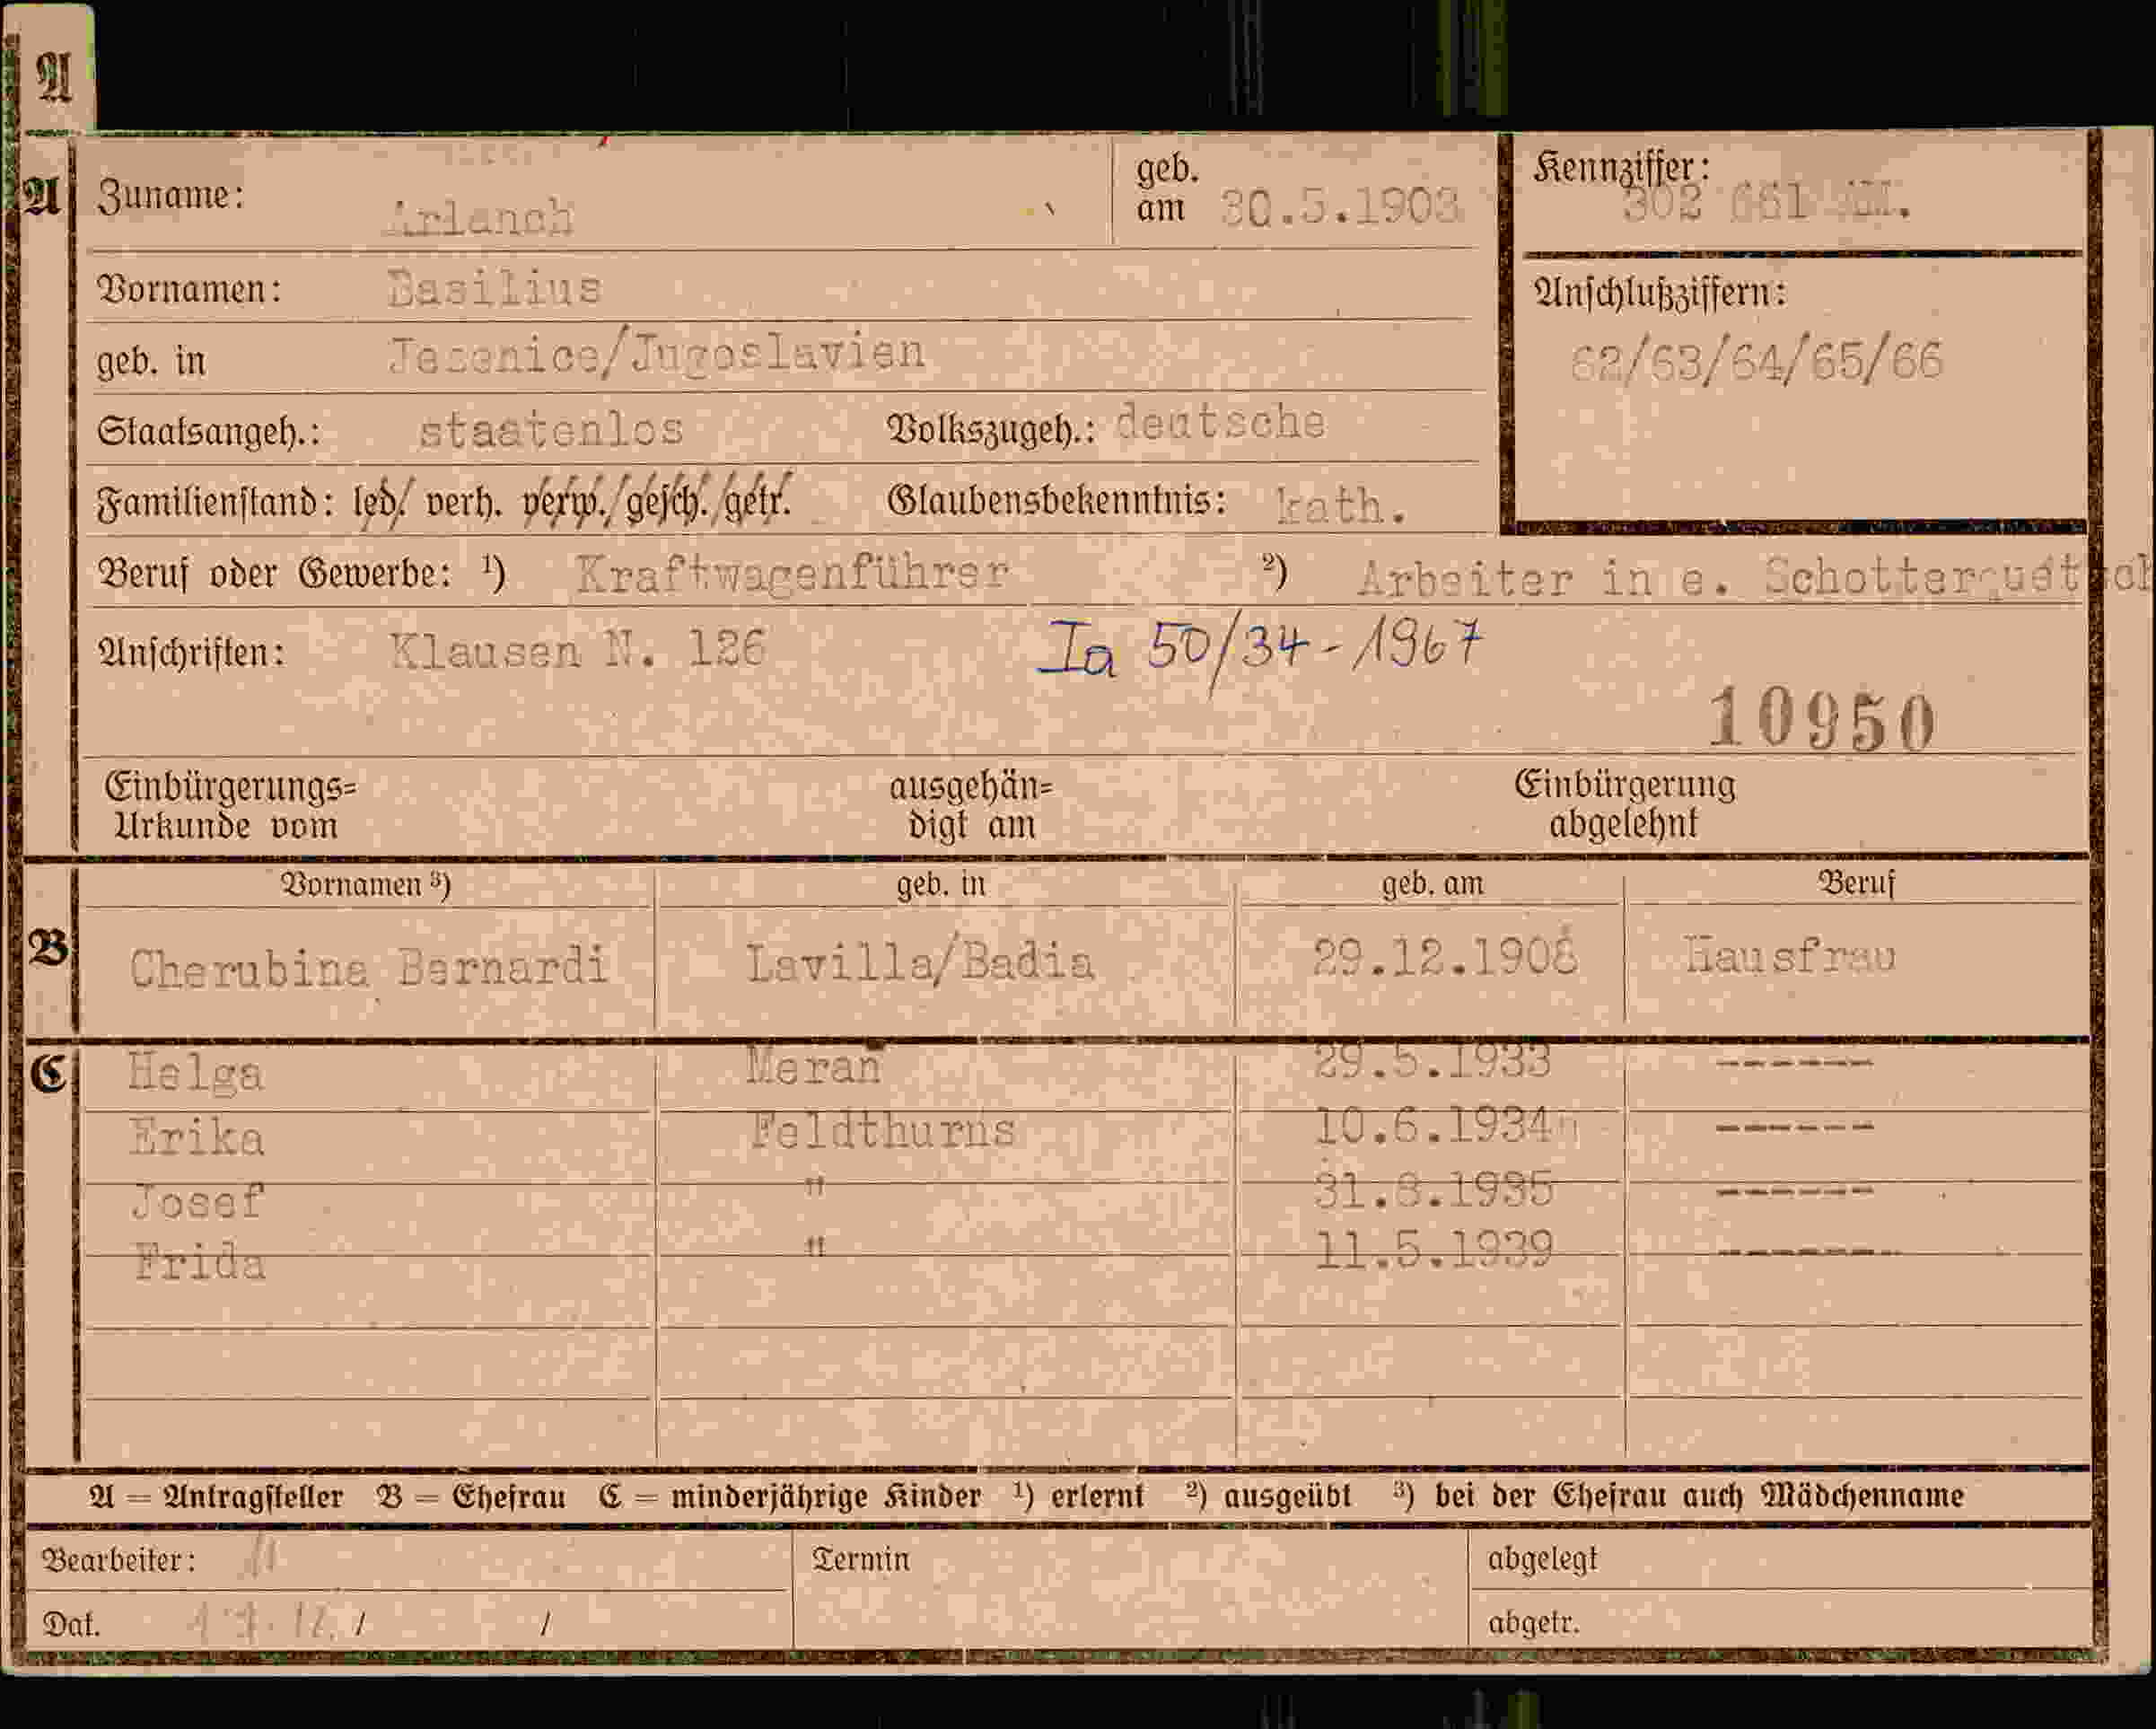 A
A
Zuname: Arlanch geb. am 30.5.1903 Kennziffer: 302 661
Vornamen: Basilius Anschlußziffern:
geb. in Jesenice/Jugoslavien 62/63/64/65/66
Staatsangeh.: staatenlos Volkszugeh.: deutsche
Familienstand: led./ verh. verw./gesch./getr. Glaubensbekenntnis: kath.
Beruf oder Gewerbe: ¹) Kraftwagenführer ²) Arbeiter in e.
Anschriften: Klausen N. 126 Ia 50/34-1967
10950
Einbürgerungs= ausgehän= Einbürgerung
Urkunde vom digt am abgelehnt
Vornamen ³) geb. in geb. am Beruf
B Cherubina Bernardi Lavilla/Badia 29.12.1908 Hausfrau
C Helga Meran 29.5.1933 ------
Erika Feldthurns 10.6.1934 ------
Josef " 31.8.1935 ------
Frida " 11.5.1939 -------
A = Antragsteller B = Ehefrau C = minderjährige Kinder ¹) erlernt ²) ausgeübt ³) bei der Ehefrau auch Mädchenname
Bearbeiter: Termin abgelegt
Dat. / / abgetr.